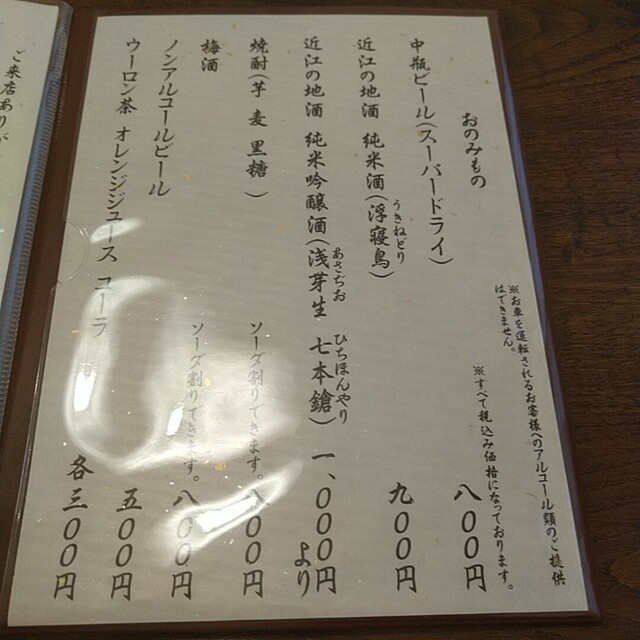 おのみもの
※お車を運転されるお客様へのアルコール類のご提供
はできません。
※すべて税込み価格になっております。
中瓶ビール(スーパードライ) 八〇〇円
近江の地酒 純米酒(浮寝鳥) 九〇〇円
うきねどり
近江の地酒 純米吟醸酒(浅芽生 七本鎗) 一、〇〇〇円
あさぢお ひちほんやり
より
焼酎(芋 麦 黒糖 ) ソーダ割りできます。 八〇〇円
梅酒 ソーダ割りできます。 八〇〇円
ノンアルコールビール 五〇〇円
ウーロン茶 オレンジジュース コーラ 各三〇〇円
ご来店あり